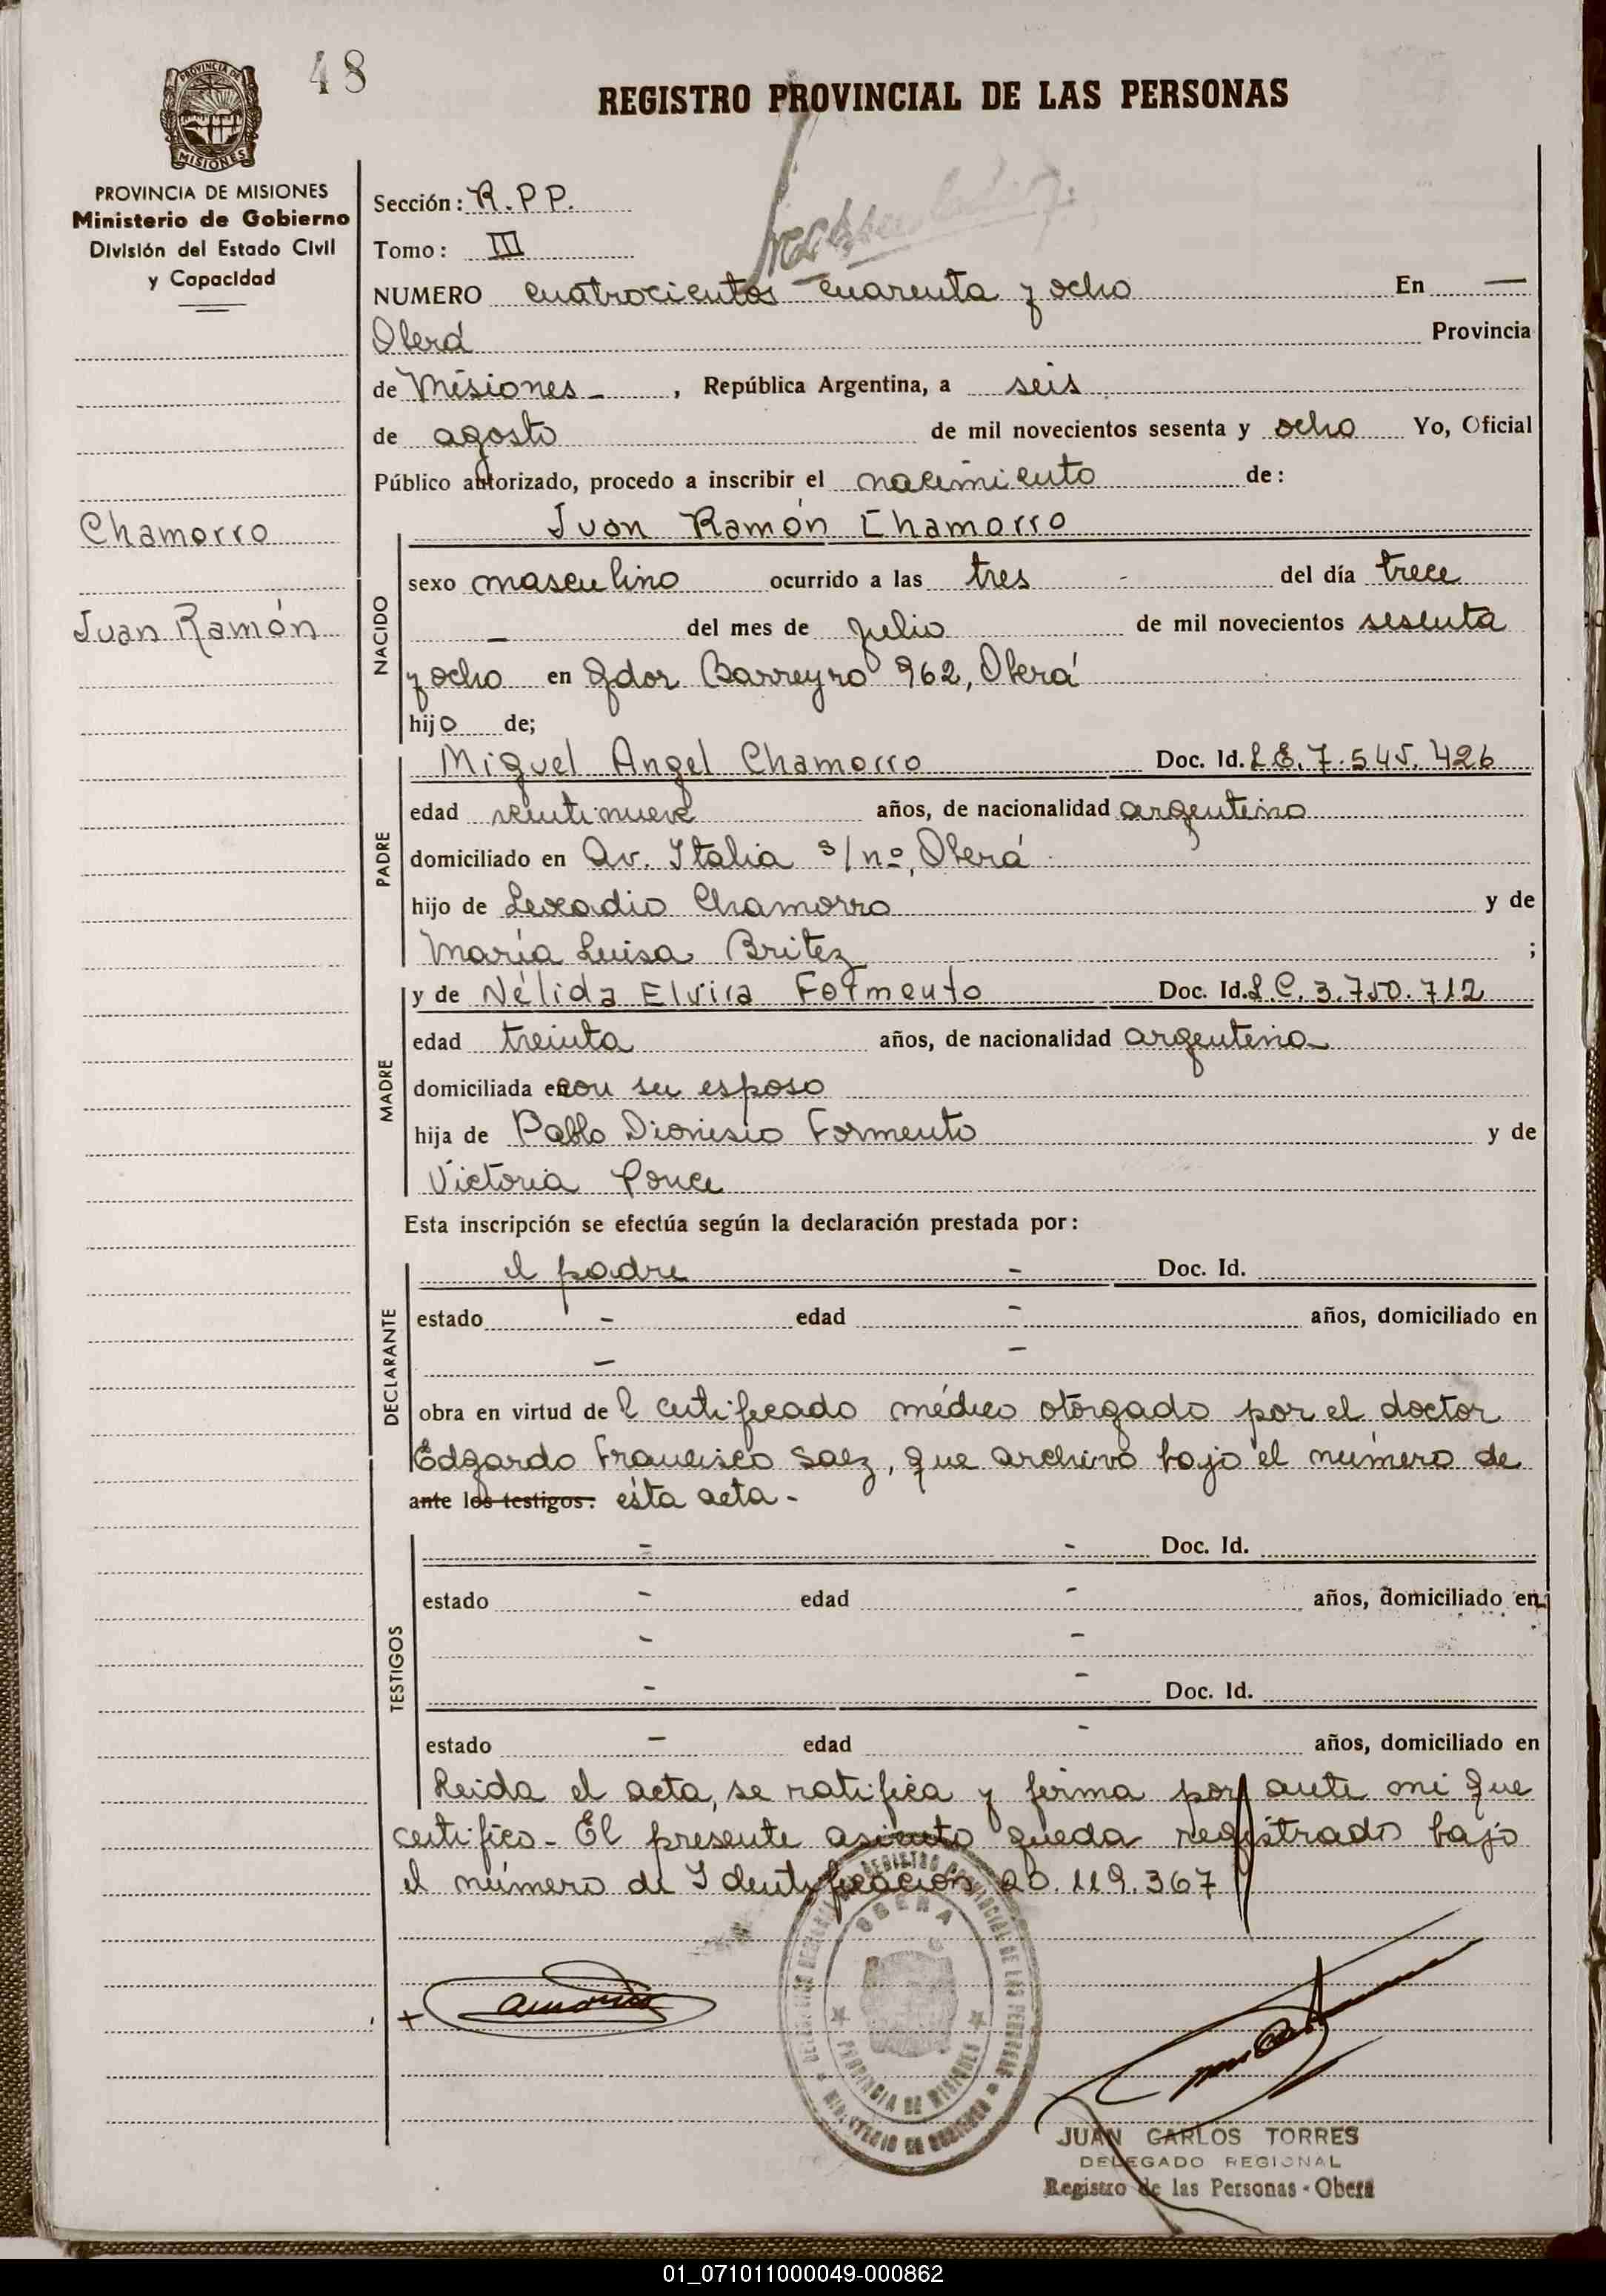 48
REGISTRO PROVINCIAL DE LAS PERSONAS
PROVINCIA DE MISIONES
PROVINCIA DE MISIONES
Ministerio de Gobierno
División del Estado Civil
y Capacidad
Chamorro
Juan Ramón
Sección: R.P.P.
Tomo: III
NUMERO cuatrocientos cuarenta y ocho En —
Oberá Provincia
de Misiones - , República Argentina, a seis
de agosto de mil novecientos sesenta y ocho Yo, Oficial
Público autorizado, procedo a inscribir el nacimiento de:
Juan Ramón Chamorro
NACIDO
sexo masculino ocurrido a las tres - del día trece
— del mes de julio de mil novecientos sesenta
y ocho en Gdor Barreyro 962, Oberá
hijo de;
PADRE
Miguel Angel Chamorro Doc. Id. L.E. 7.545.426
edad veintinueve años, de nacionalidad argentino
domiciliado en Av. Italia s/nº, Oberá
hijo de Leocadio Chamorro y de
María Luisa Britez ;
MADRE
y de Nélida Elvira Formento Doc. Id. L.C. 3.750.712
edad treinta años, de nacionalidad argentina
domiciliada en con su esposo
hija de Pablo Dionisio Formento y de
Victoria Ponce
Esta inscripción se efectúa según la declaración prestada por:
DECLARANTE
el padre - Doc. Id.
estado - edad - años, domiciliado en
- -
obra en virtud de l certificado médico otorgado por el doctor
Edgardo Francisco Saez, que archivo bajo el número de
ante los testigos: ésta acta -
TESTIGOS
- - Doc. Id.
estado - edad - años, domiciliado en
- -
- - Doc. Id.
estado - edad - años, domiciliado en
Leida el acta, se ratifica y firma por ante mi que
certifico - El presente asiento queda registrado bajo
el número de Identificación 20.119.367
OBERA
PROVINCIA DE MISIONES
JUAN CARLOS TORRES
DELEGADO REGIONAL
Registro de las Personas - Oberá
01_071011000049-000862